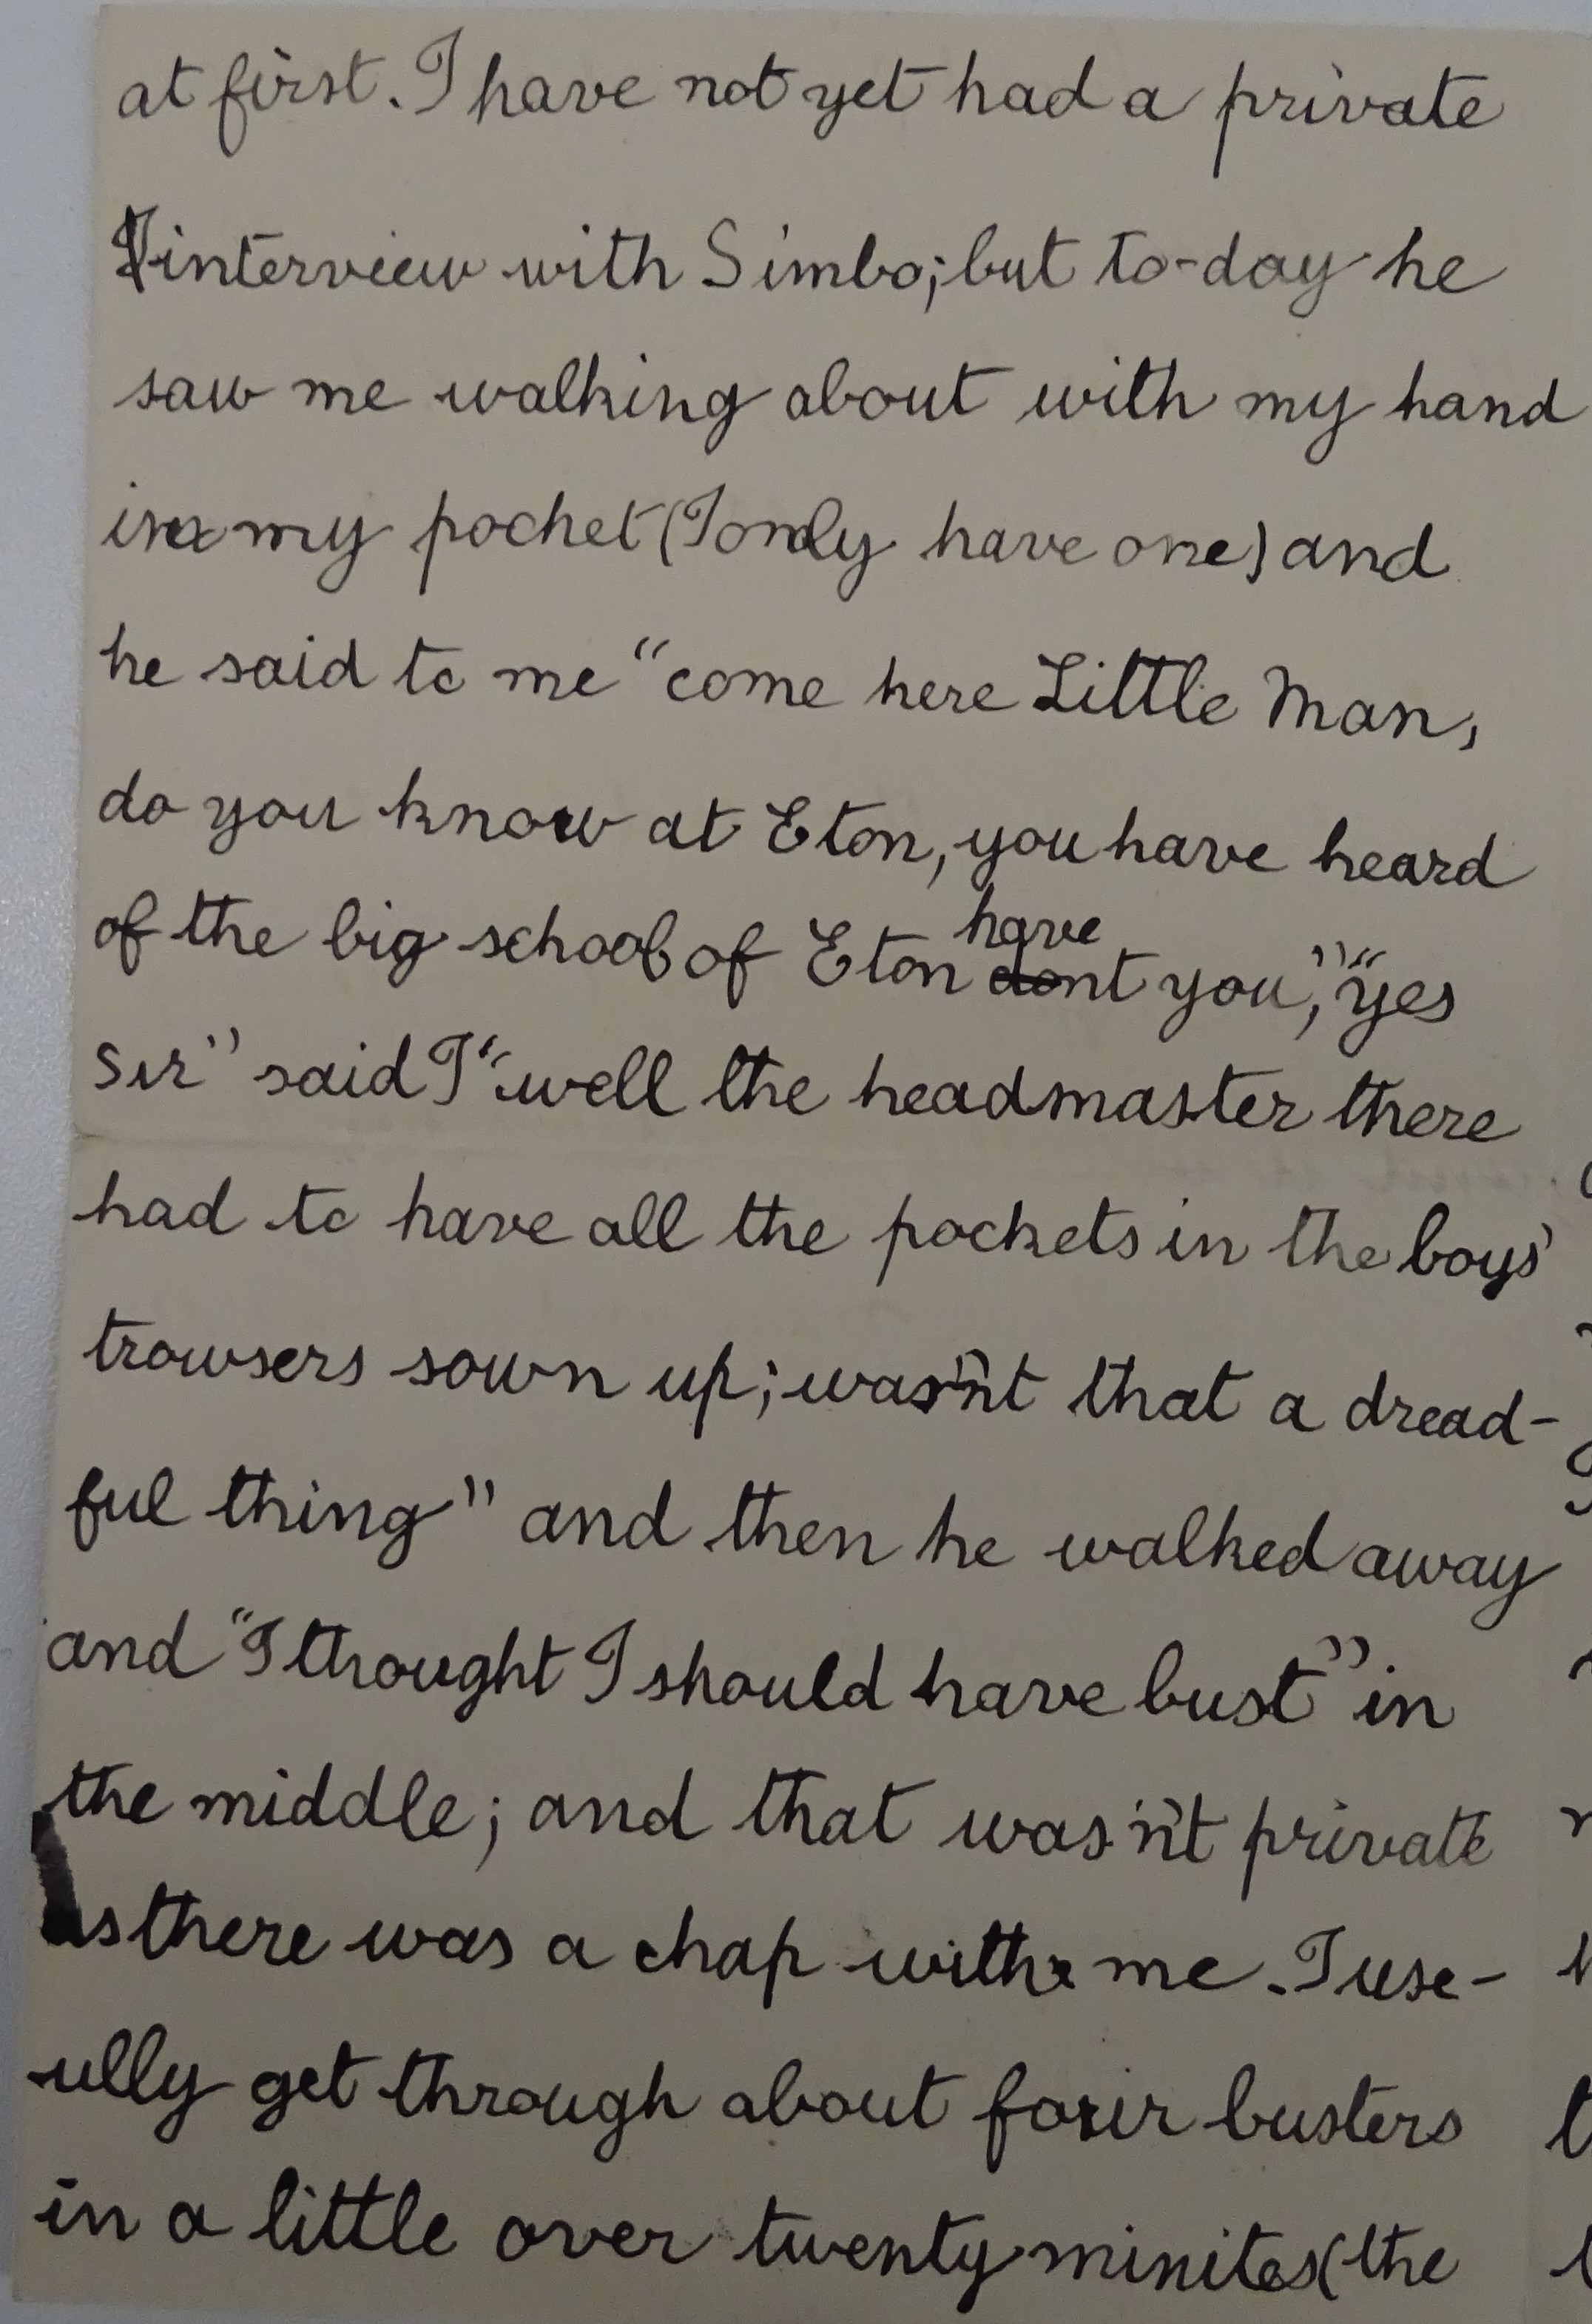 at first. I have not yet had a private
interview with Simbo; but to-day he
saw me walking about with my hand
in my pocket (I only have one) and
he said to me "come here Little Man,
do you know at Eton, you have heard
of the big school of Eton have
dont you," "yes
sir" said I "well the headmaster there
had to have all the pockets in the boys'
trowsers sown up; was'n't that a dread-
ful thing" and then he walked away
and "I thought I should have bust" in
the middle; and that was'n't private
as there was a chap with me. I use-
ully get through about four busters
in a little over twenty minites (the